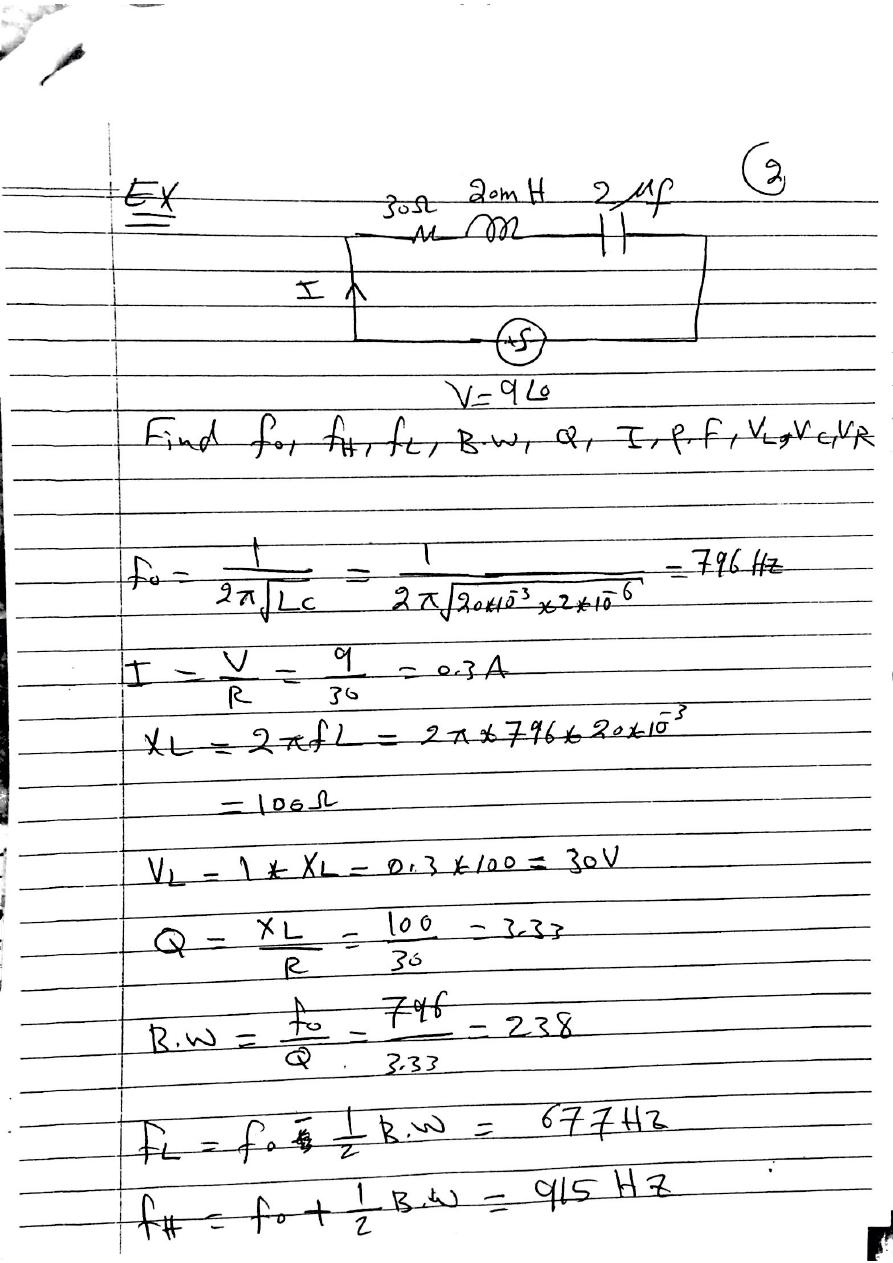 ②
EX
30Ω 20mH 2 μf
I
V=9∠0
Find fo, fH, fL, B.W, Q, I, p.F, VL, VC, VR
fo = 1 / 2π√LC = 1 / 2π√20*10^-3 *2*10^-6 = 796 HZ
I = V/R = 9/30 = 0.3 A
XL = 2πfL = 2π*796*20*10^-3
= 100Ω
VL = 1 * XL = 0.3 * 100 = 30V
Q = XL/R = 100/30 = 3.33
B.W = fo/Q = 796/3.33 = 238
fL = fo - 1/2 B.W = 677HZ
fH = fo + 1/2 B.W = 915 HZ